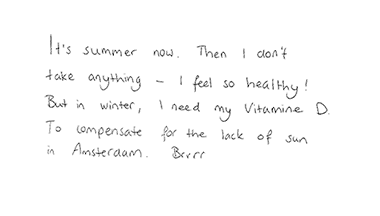 It's summer now. Then I don't
take anything – I feel so healthy!
But in winter, I need my Vitamine D.
To compensate for the lack of sun
in Amsterdam. Brrrr